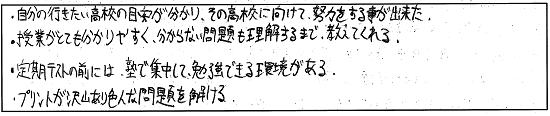 ・自分の行きたい高校の目安が分かり、その高校に向けて、努力をする事が出来た.
・授業がとても分かりやすく、分からない問題も理解するまで、教えてくれる.
・定期テストの前には、塾で集中して、勉強できる環境がある.
・プリントが沢山あり色んな問題を解ける.